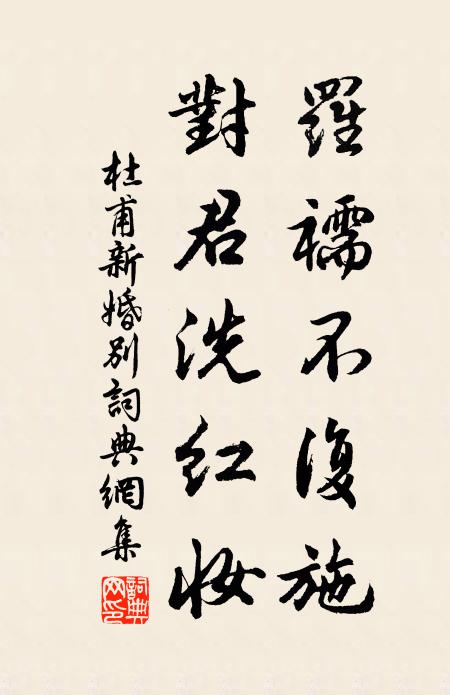 羅襦不復施
對君洗紅妝
杜甫新婚別詞典網集
詞典网印